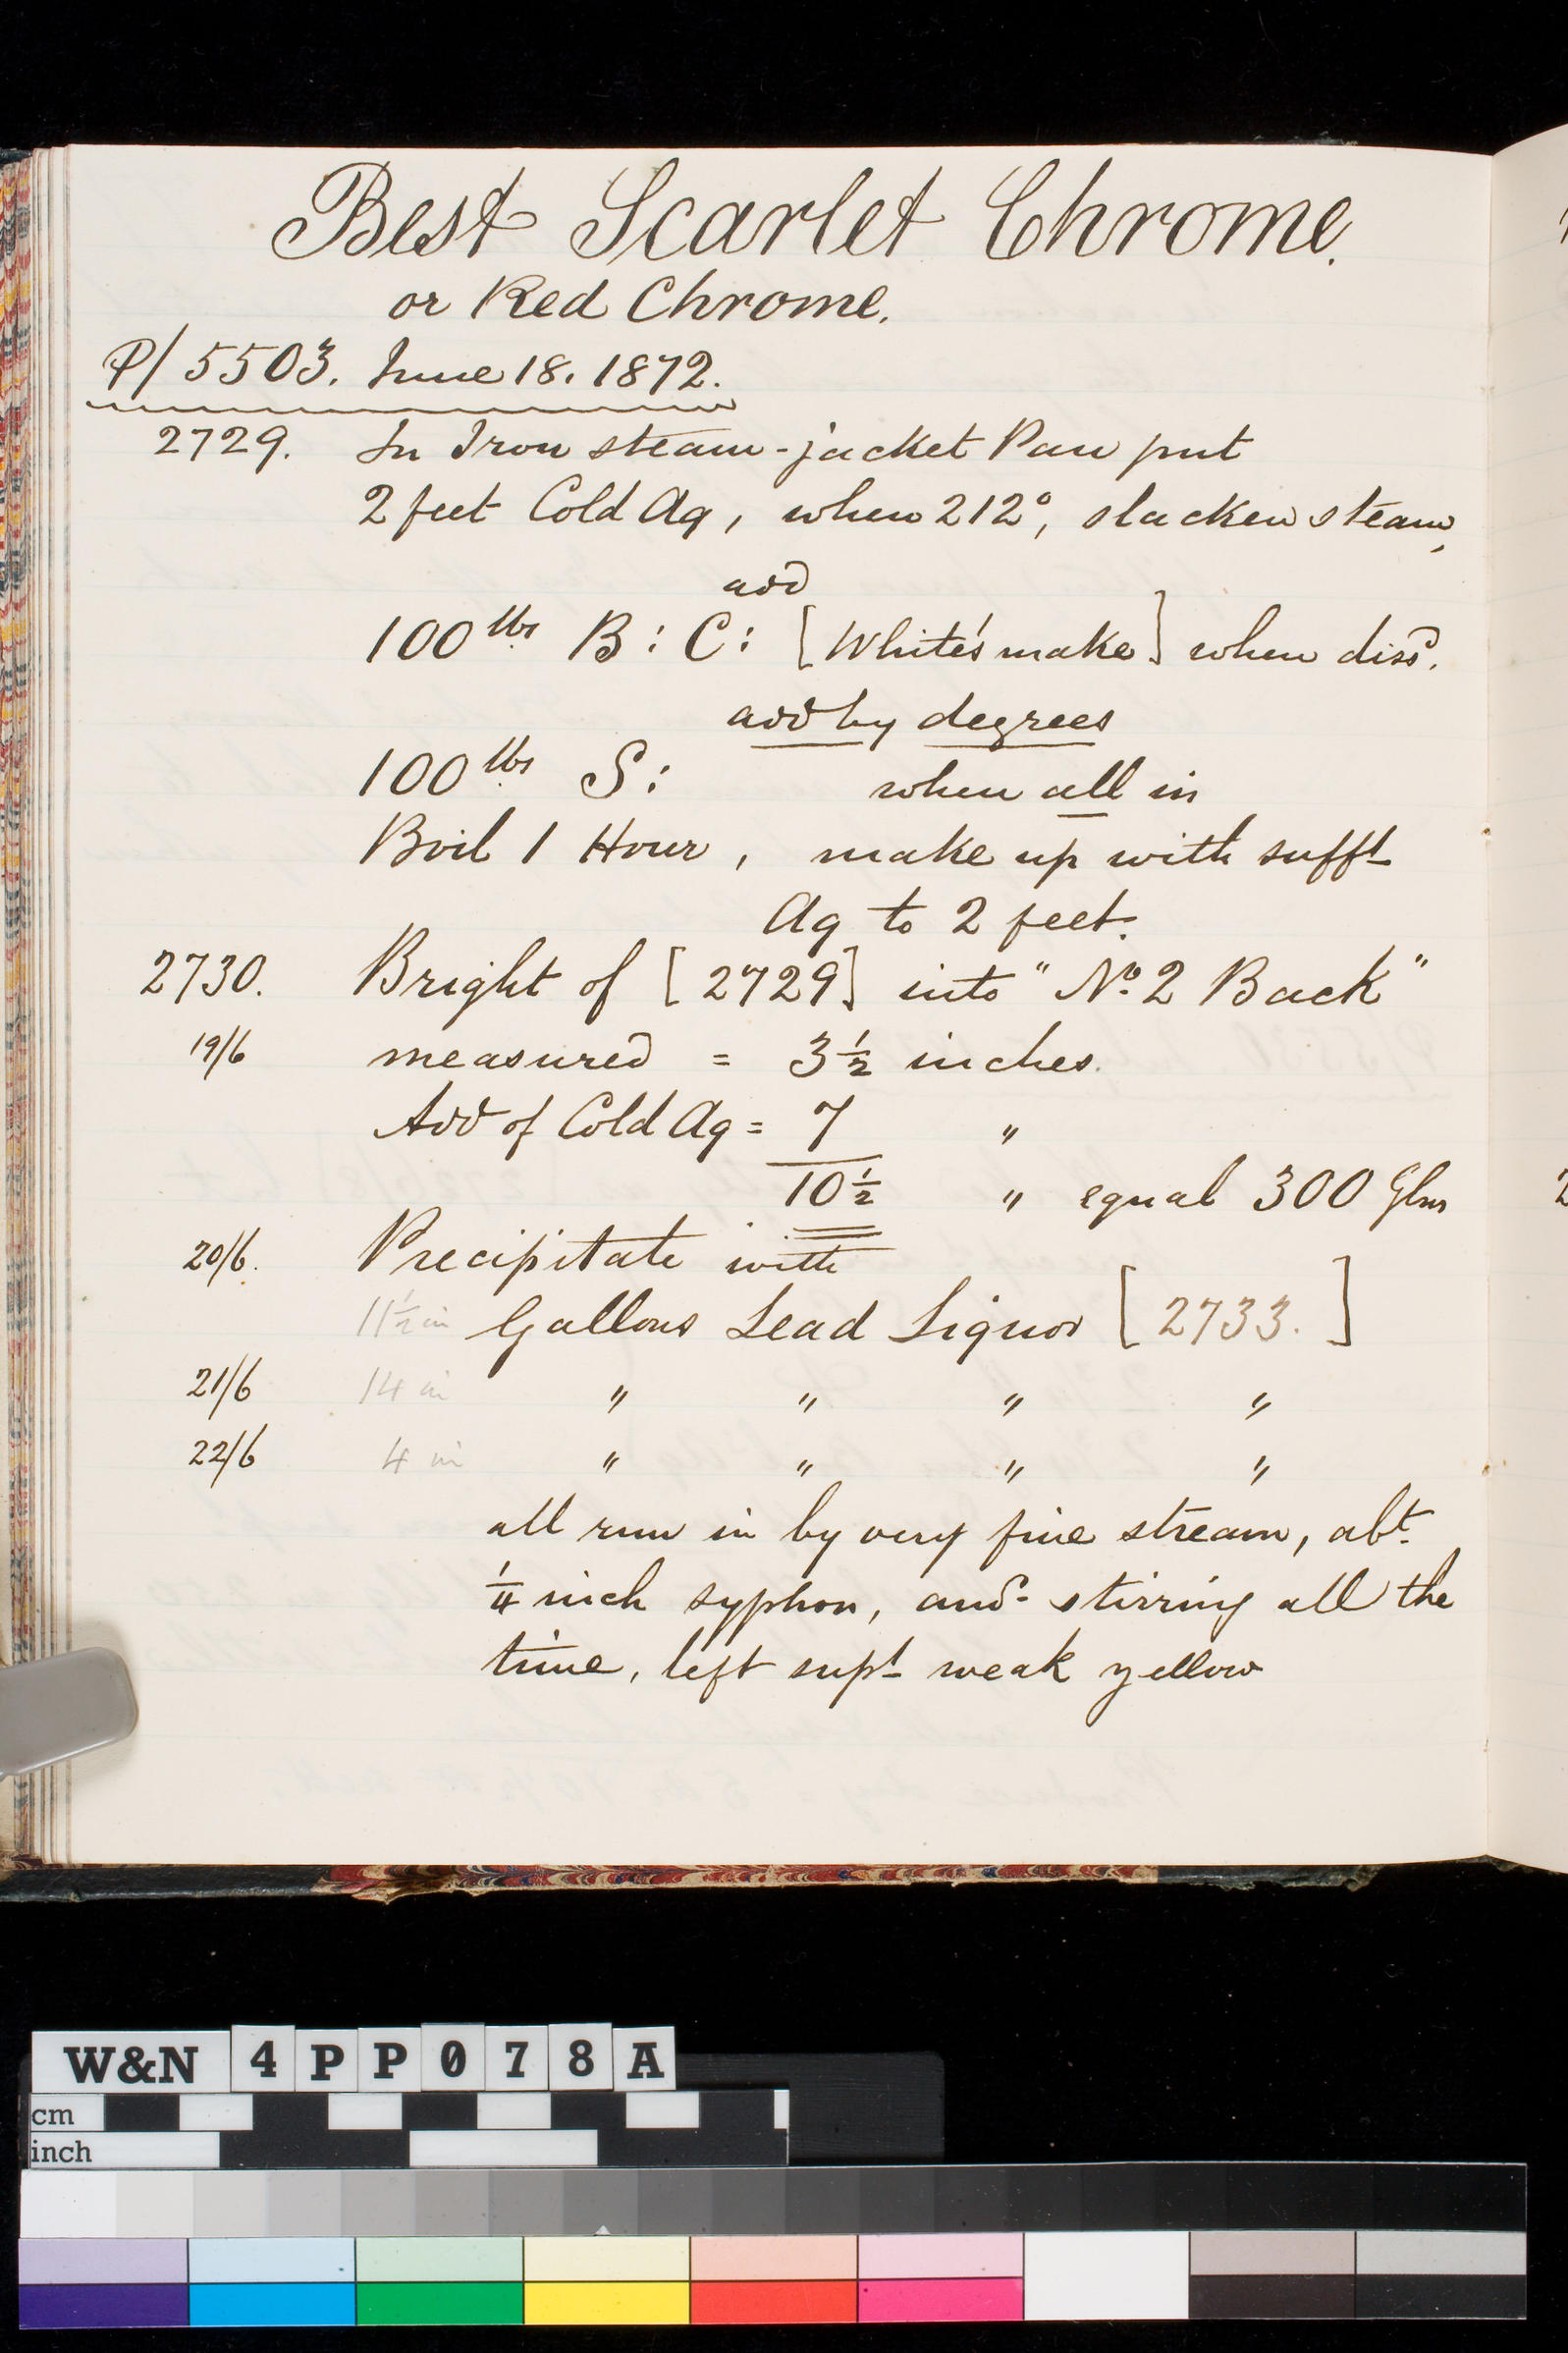 Best Scarlet Chrome.
or Red Chrome.
P/ 5503. June 18. 1872.
2729. In Iron steam-jacket Pan put
2 feet Cold Aq, when 212°, slacken steam,
add
100 lbs B: C: [White's make] when dissd.
add by degrees
100 lbs S: when all in
Boil 1 Hour, make up with sufft
Aq to 2 feet.
2730. Bright of [2729] into "No. 2 Back"
19/6 measured = 3 1/2 inches.
Add of Cold Aq = 7 "
10 1/2 " equal 300 Glns
20/6. Precipitate with
11 1/2 in Gallons Lead Liquor [2733.]
21/6 14 in " " " "
22/6 4 in " " " "
all run in by very fine stream, abt.
1/4 inch syphon, and stirring all the
time, left supt weak yellow
W&N 4PP078A
cm
inch